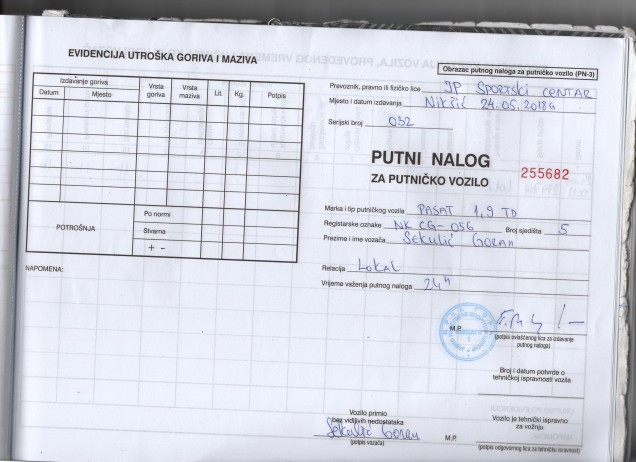 EVIDENCIJA UTROŠKA GORIVA I MAZIVA
Izdavanje goriva
Datum Mjesto Vrsta goriva Vrsta maziva Lit. Kg. Potpis
POTROŠNJA
Po normi
Stvarna
+ -
NAPOMENA:
Obrazac putnog naloga za putničko vozilo (PN-3)
Prevoznik, pravno ili fizičko lice JP SPORTSKI CENTAR
Mjesto i datum izdavanja Nikšić 24.05.2018G
Serijski broj 032
PUTNI NALOG
ZA PUTNIČKO VOZILO
255682
Marka i tip putničkog vozila PASAT 1,9 TD
Registarske oznake NK CG-056 Broj sjedišta 5
Prezime i ime vozača Sekulić Goran
Relacija Lokal
Vrijeme važenja putnog naloga 24h
M.P.
(potpis ovlašćenog lica za izdavanje
putnog naloga)
Broj i datum potvrde o
tehničkoj ispravnosti vozila
Vozilo primio
bez vidljivih nedostataka
Sekulić Goran
(potpis vozača)
Vozilo je tehnički ispravno
za vožnju
M.P.
(potpis odgovornog lica za tehničku isravnost)